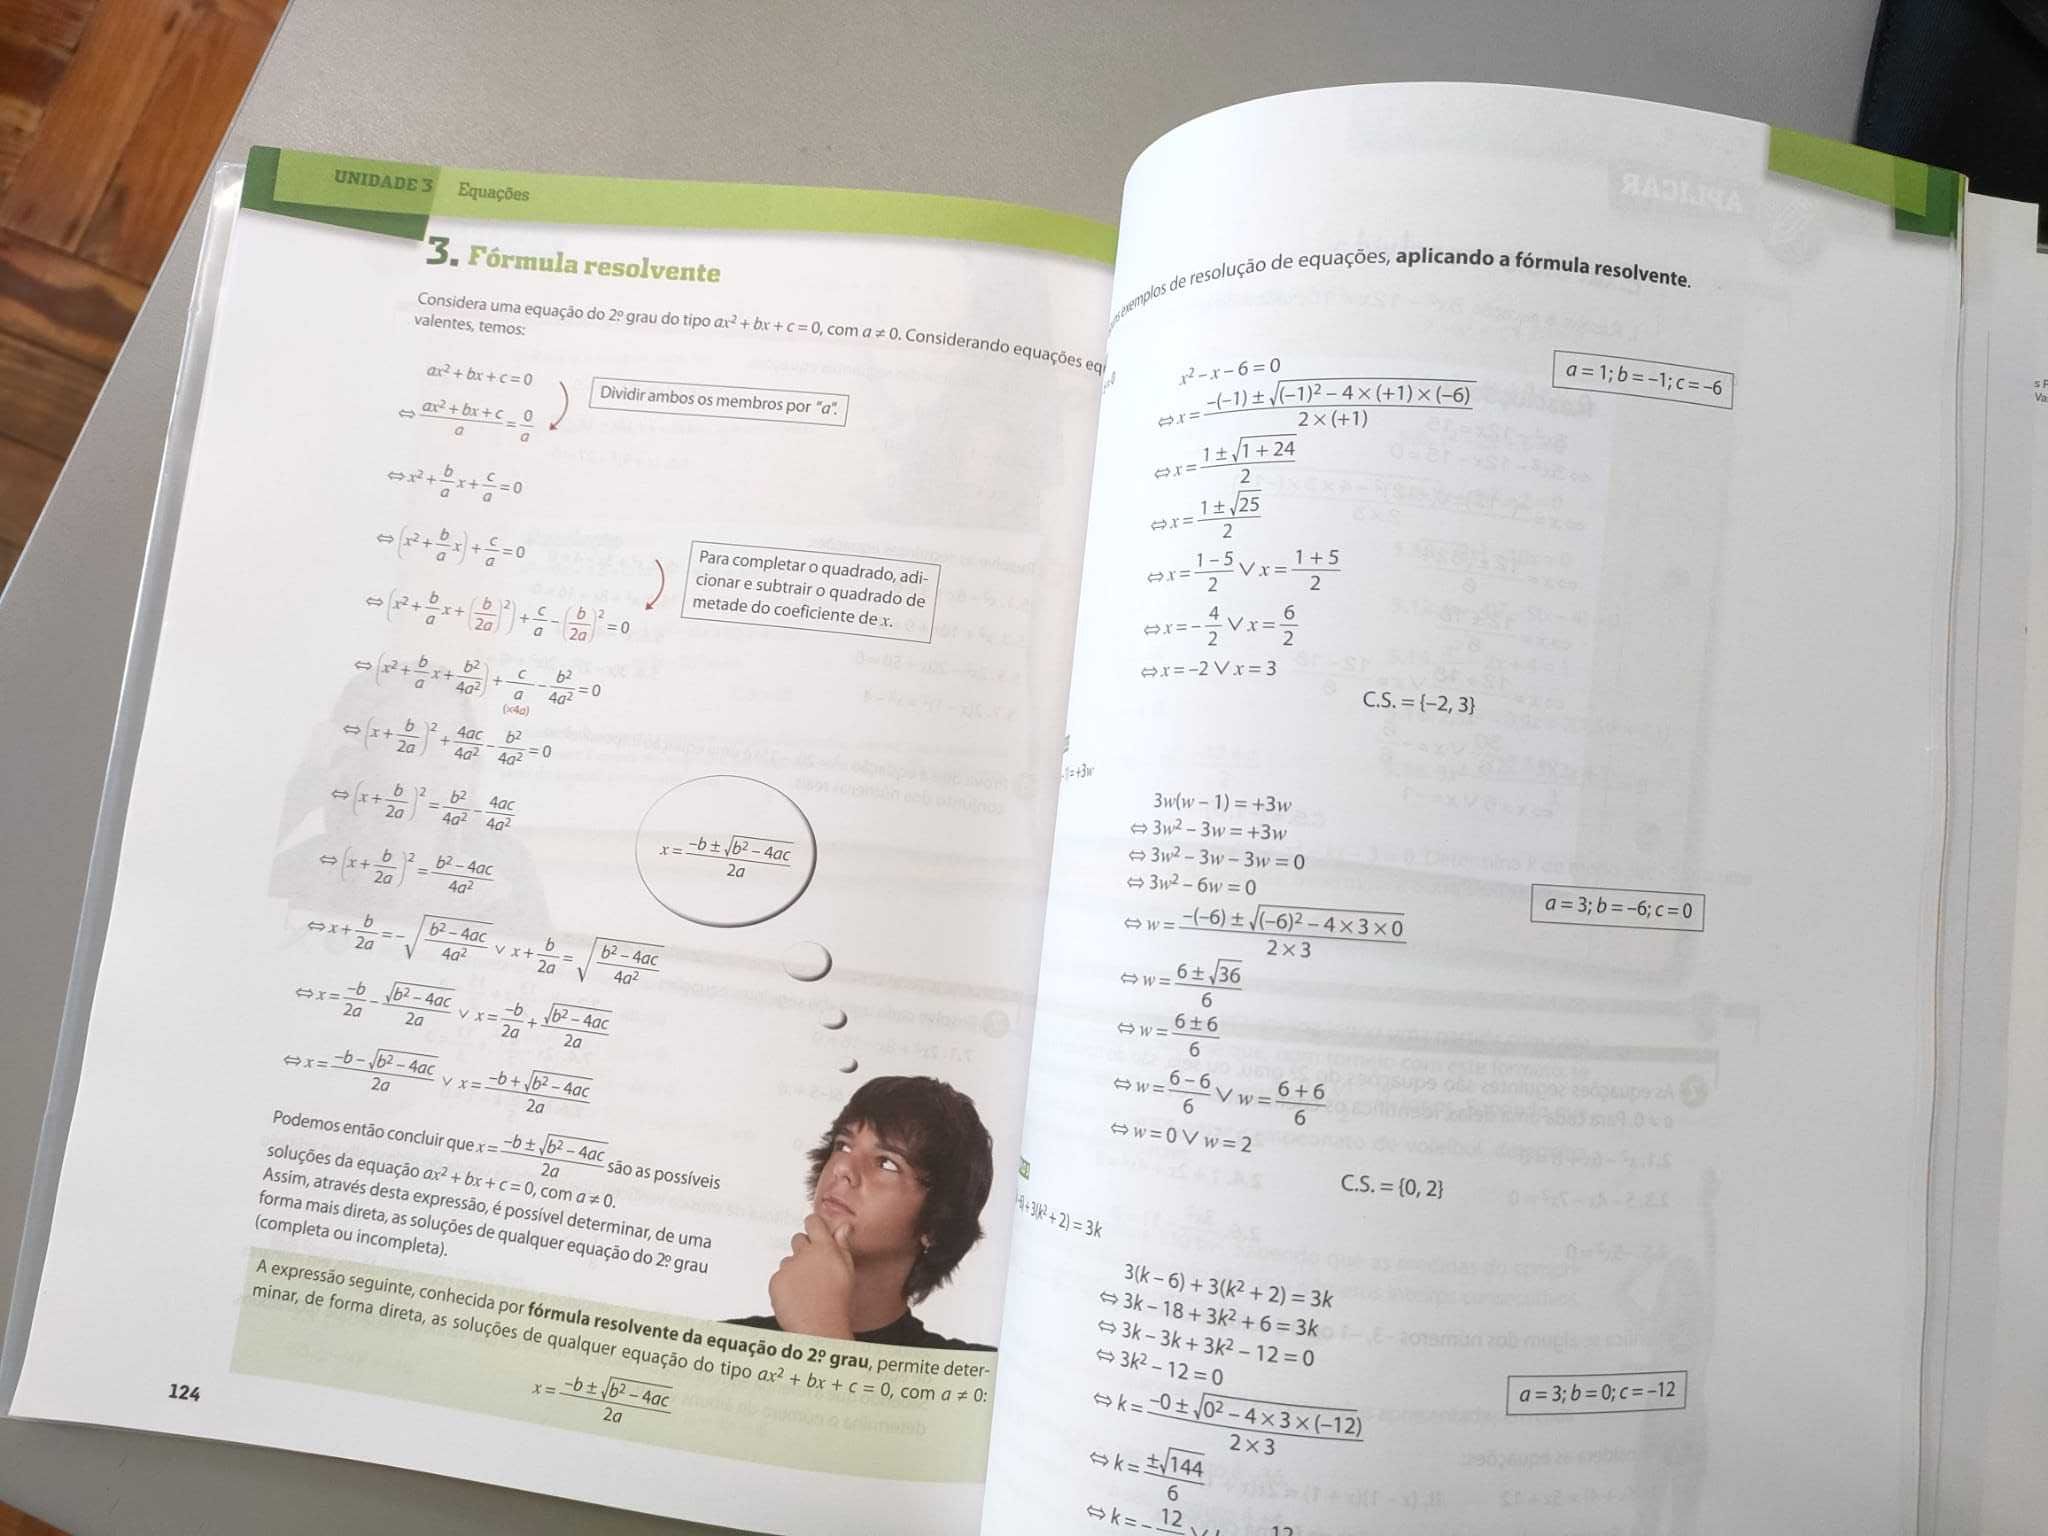 UNIDADE 3 Equações
3. Fórmula resolvente
Considera uma equação do 2.º grau do tipo ax² + bx + c = 0, com a ≠ 0. Considerando equações equi
valentes, temos:
ax² + bx + c = 0
Dividir ambos os membros por "a".
⇔ (ax² + bx + c)/a = 0/a
⇔ x² + b/a x + c/a = 0
⇔ (x² + b/a x) + c/a = 0
Para completar o quadrado, adi-
cionar e subtrair o quadrado de
metade do coeficiente de x.
⇔ (x² + b/a x + (b/2a)²) + c/a − (b/2a)² = 0
⇔ (x² + b/a x + b²/4a²) + c/a − b²/4a² = 0
(×4a)
⇔ (x + b/2a)² + 4ac/4a² − b²/4a² = 0
⇔ (x + b/2a)² = b²/4a² − 4ac/4a²
⇔ (x + b/2a)² = (b² − 4ac)/4a²
x = (−b ± √(b² − 4ac))/2a
⇔ x + b/2a = −√((b² − 4ac)/4a²) ∨ x + b/2a = √((b² − 4ac)/4a²)
⇔ x = −b/2a − √(b² − 4ac)/2a ∨ x = −b/2a + √(b² − 4ac)/2a
⇔ x = (−b − √(b² − 4ac))/2a ∨ x = (−b + √(b² − 4ac))/2a
Podemos então concluir que x = (−b ± √(b² − 4ac))/2a são as possíveis
soluções da equação ax² + bx + c = 0, com a ≠ 0.
Assim, através desta expressão, é possível determinar, de uma
forma mais direta, as soluções de qualquer equação do 2.º grau
(completa ou incompleta).
A expressão seguinte, conhecida por fórmula resolvente da equação do 2.º grau, permite deter-
minar, de forma direta, as soluções de qualquer equação do tipo ax² + bx + c = 0, com a ≠ 0:
x = (−b ± √(b² − 4ac))/2a
124
exemplos de resolução de equações, aplicando a fórmula resolvente.
x² − x − 6 = 0
a = 1; b = −1; c = −6
⇔ x = (−(−1) ± √((−1)² − 4 × (+1) × (−6)))/(2 × (+1))
⇔ x = (1 ± √(1 + 24))/2
⇔ x = (1 ± √25)/2
⇔ x = (1 − 5)/2 ∨ x = (1 + 5)/2
⇔ x = −4/2 ∨ x = 6/2
⇔ x = −2 ∨ x = 3
C.S. = {−2, 3}
= +3w
3w(w − 1) = +3w
⇔ 3w² − 3w = +3w
⇔ 3w² − 3w − 3w = 0
⇔ 3w² − 6w = 0
a = 3; b = −6; c = 0
⇔ w = (−(−6) ± √((−6)² − 4 × 3 × 0))/(2 × 3)
⇔ w = (6 ± √36)/6
⇔ w = (6 ± 6)/6
⇔ w = (6 − 6)/6 ∨ w = (6 + 6)/6
⇔ w = 0 ∨ w = 2
C.S. = {0, 2}
+ 3(k² + 2) = 3k
3(k − 6) + 3(k² + 2) = 3k
⇔ 3k − 18 + 3k² + 6 = 3k
⇔ 3k − 3k + 3k² − 12 = 0
⇔ 3k² − 12 = 0
a = 3; b = 0; c = −12
⇔ k = (−0 ± √(0² − 4 × 3 × (−12)))/(2 × 3)
⇔ k = ±√144/6
⇔ k = −12
12